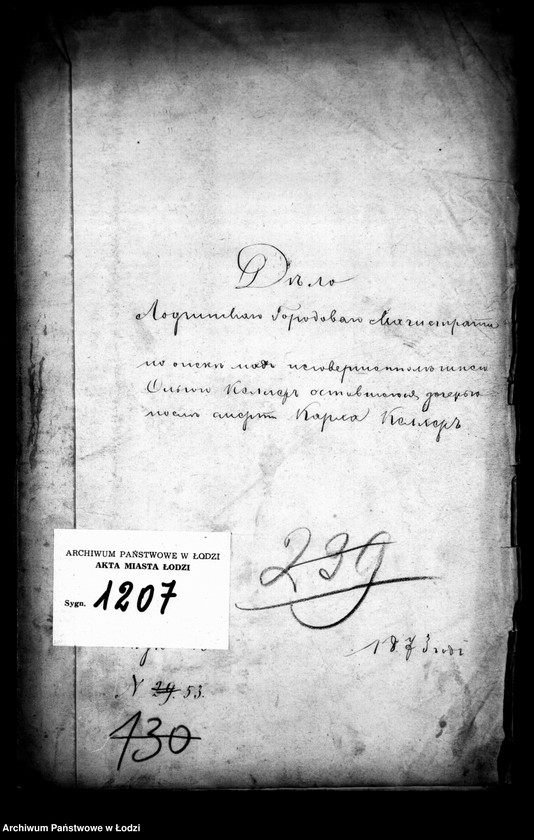 Дѣло
Лодзинскаго Городоваго Магистрата
по опекѣ надъ несовершеннолѣтнею
Ольгою Келлеръ оставшеюся дочерью
послѣ смерти Карла Келлеръ
239
ARCHIWUM PAŃSTWOWE W ŁODZI
AKTA MIASTA ŁODZI
Sygn. 1207
1873 года
N 29. 53.
430
Archiwum Państwowe w Łodzi
Archiwum Państwowe w Łodzi